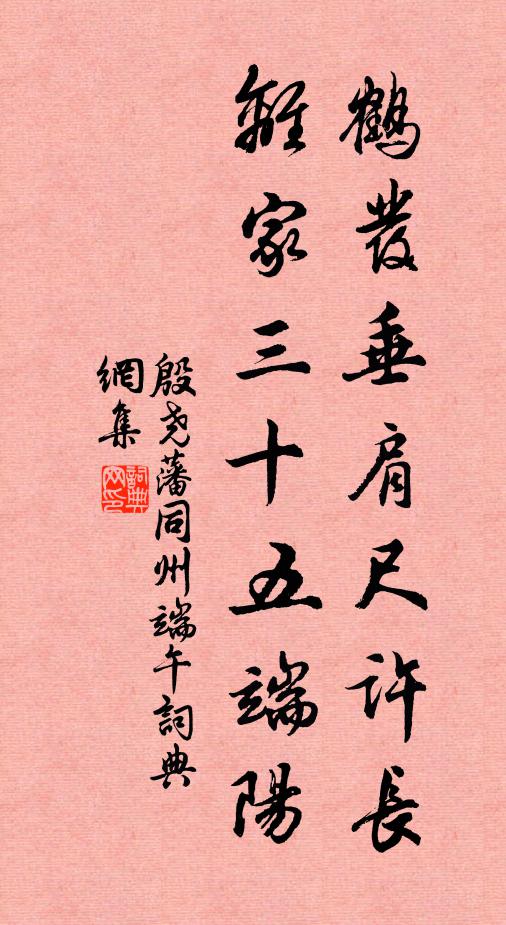 鶴發垂肩尺許長
離家三十五端陽
殷堯藩同州端午詞典
網集
詞典網印